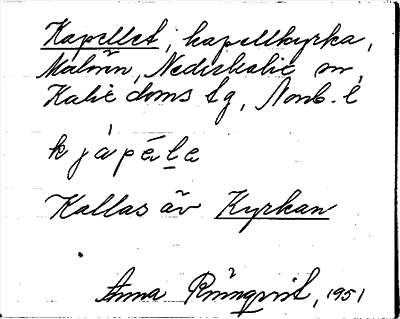 Kapellet, kapellkyrka,
Malören, Nederkalix sn,
Kalix doms lg, Nonb. l
kjàpéle
Kallas äv Kyrkan
Anna Rönnqvist, 1951